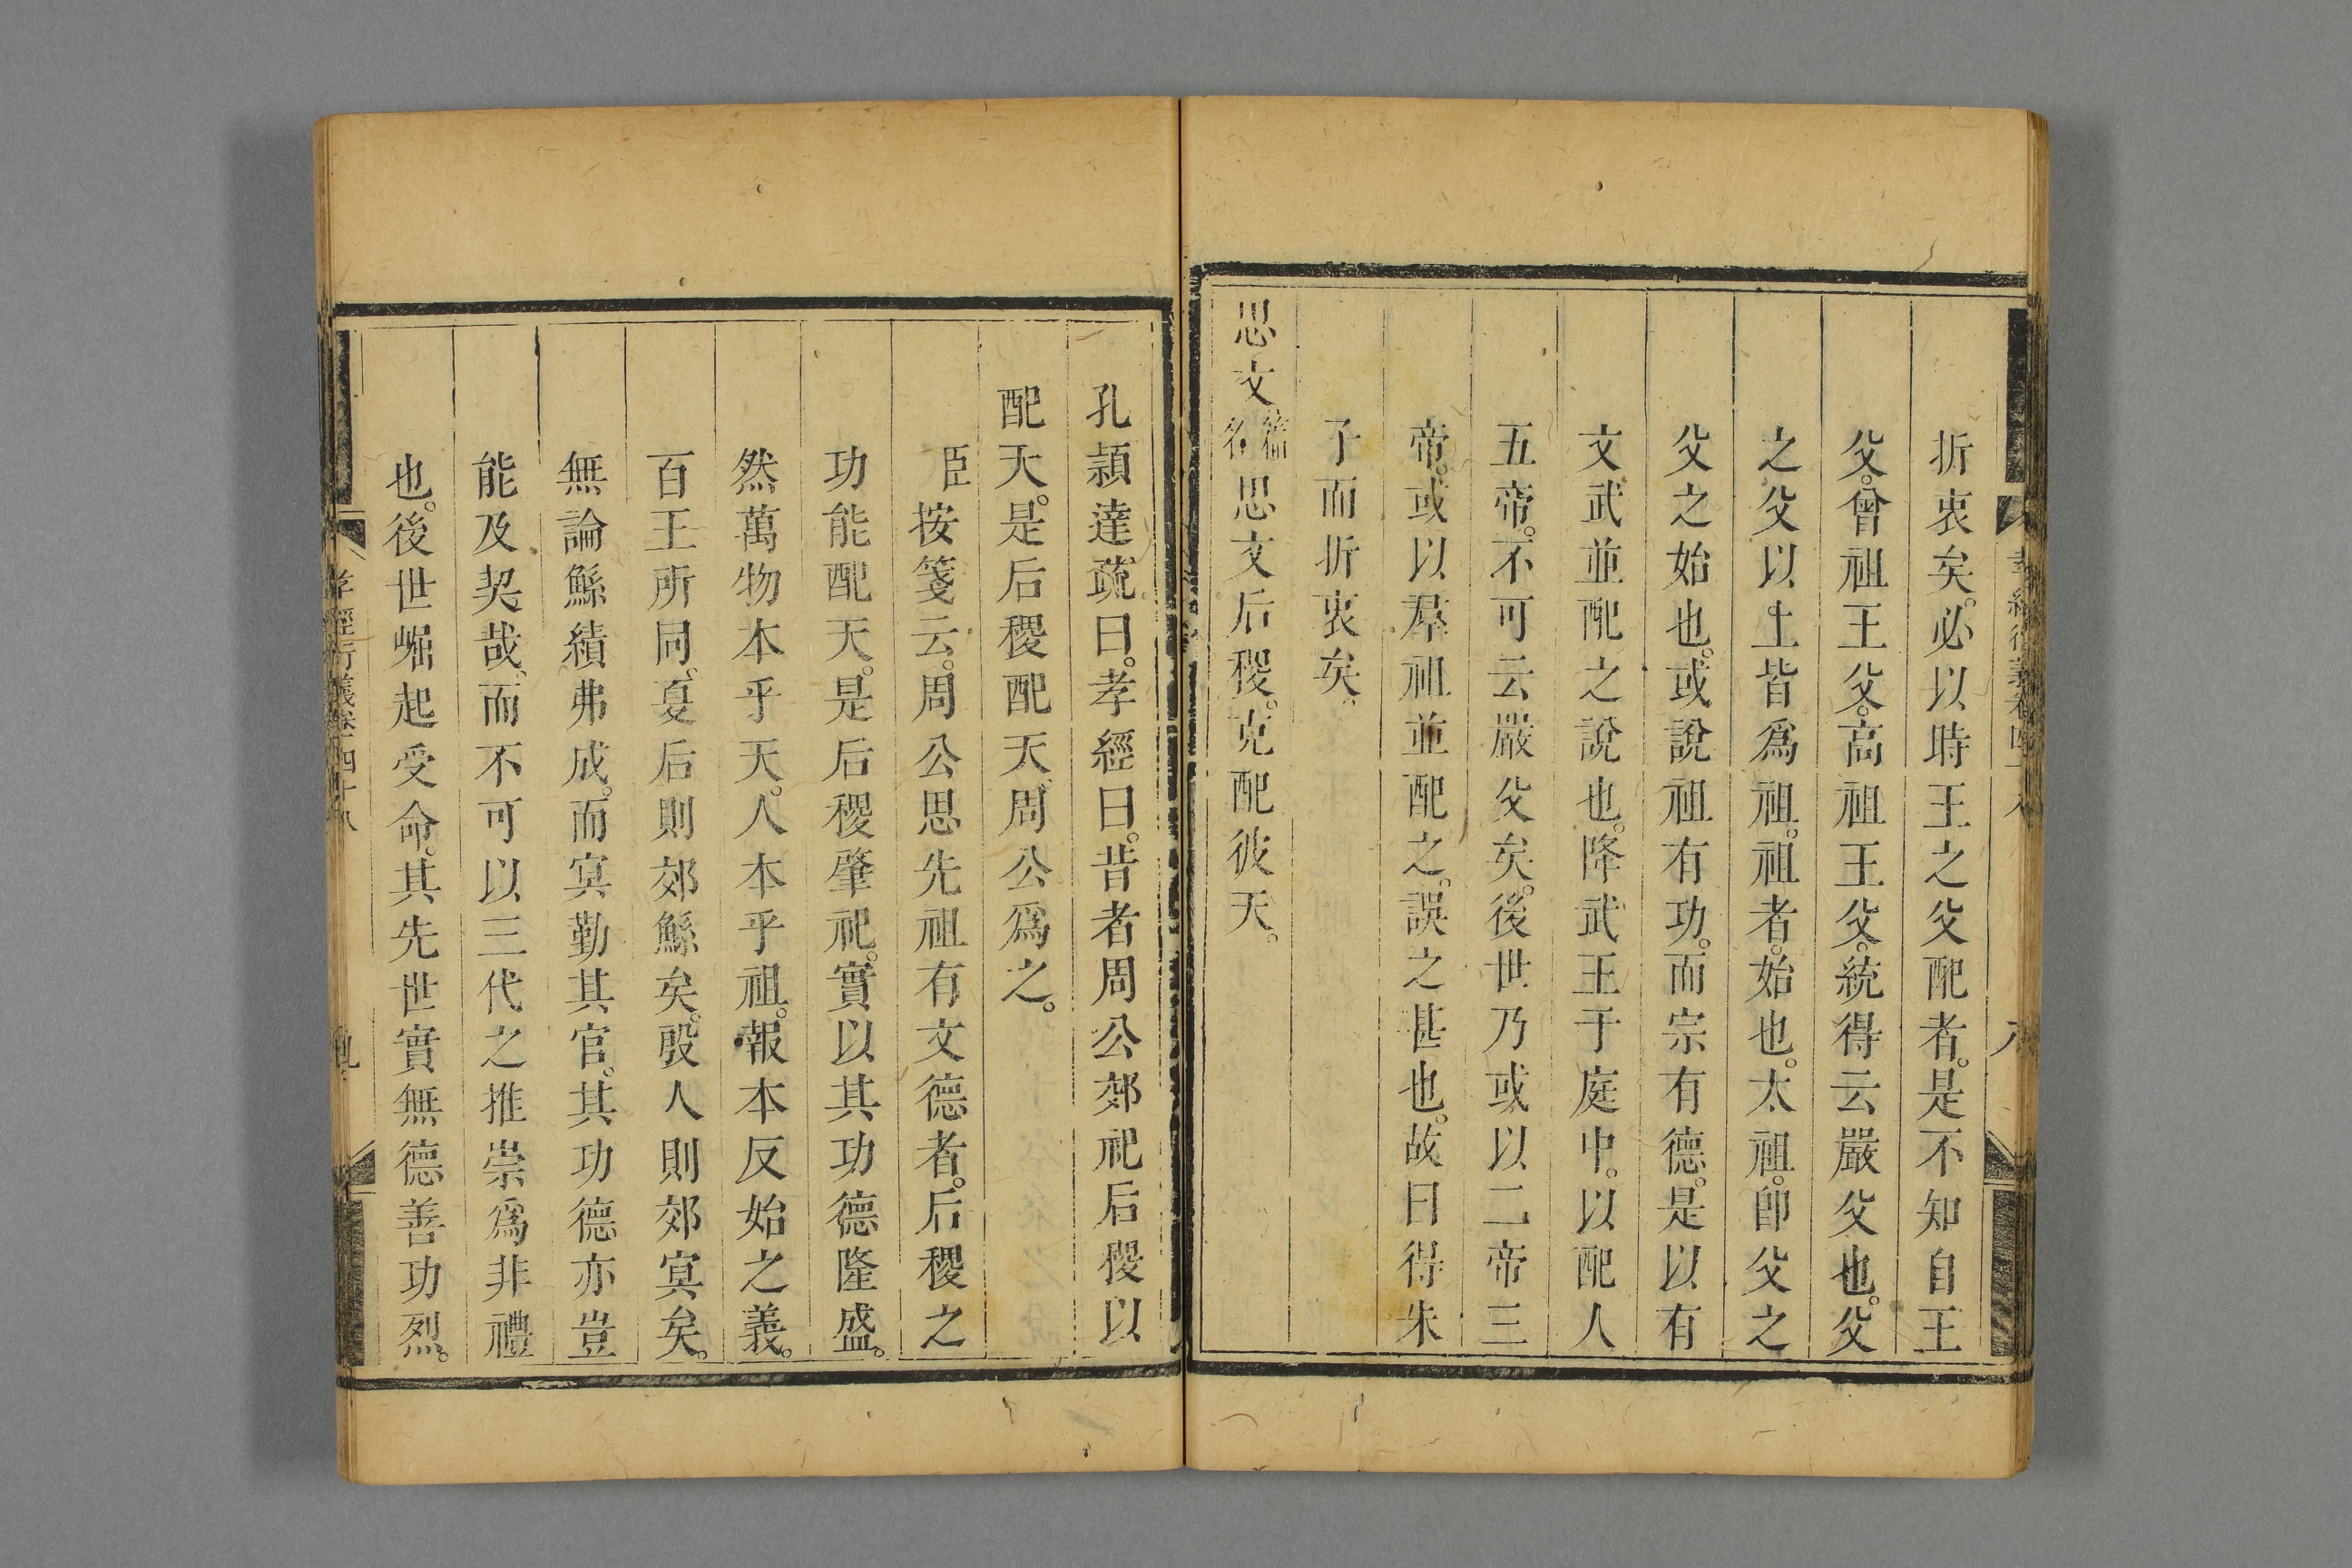 折衷矣。必以時王之父配者。是不知自王
父。曾祖王父。高祖王父。統得云嚴父也。父
之父以上皆爲祖。祖者。始也。太祖。卽父之
父之始也。或說祖有功。而宗有德。是以有
文武並配之說也。降武王于庭中。以配人
五帝。不可云嚴父矣。後世乃或以二帝三
帝。或以羣祖並配之。誤之甚也。故曰得朱
子而折衷矣。
思文篇名思文后稷。克配彼天。
孔頴達疏曰。孝經曰。昔者周公郊祀后稷以
配天。是后稷配天。周公爲之。
臣按箋云。周公思先祖有文德者。后稷之
功能配天。是后稷肇祀。實以其功德隆盛。
然萬物本乎天。人本乎祖。報本反始之義。
百王所同。夏后則郊鯀矣。殷人則郊冥矣。
無論鯀績弗成。而冥勤其官。其功德亦豈
能及契哉。而不可以三代之推崇爲非禮
也。後世崛起受命。其先世實無德善功烈。
孝經衍義卷四十八
九